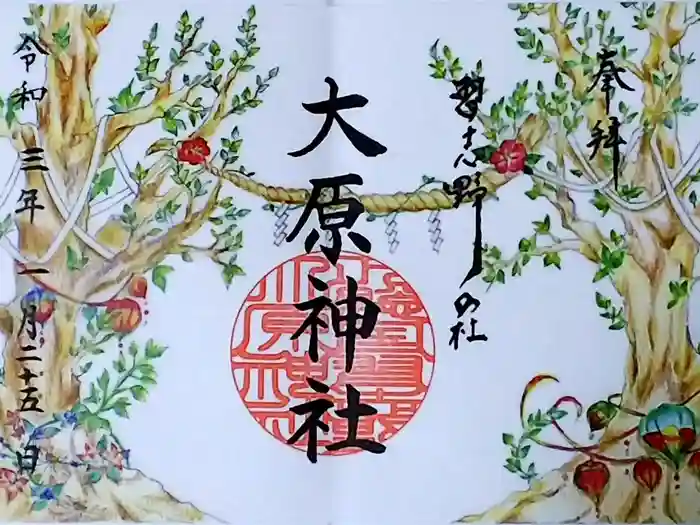 奉拝
習志野の社
大原神社
令和三年一月二十五日